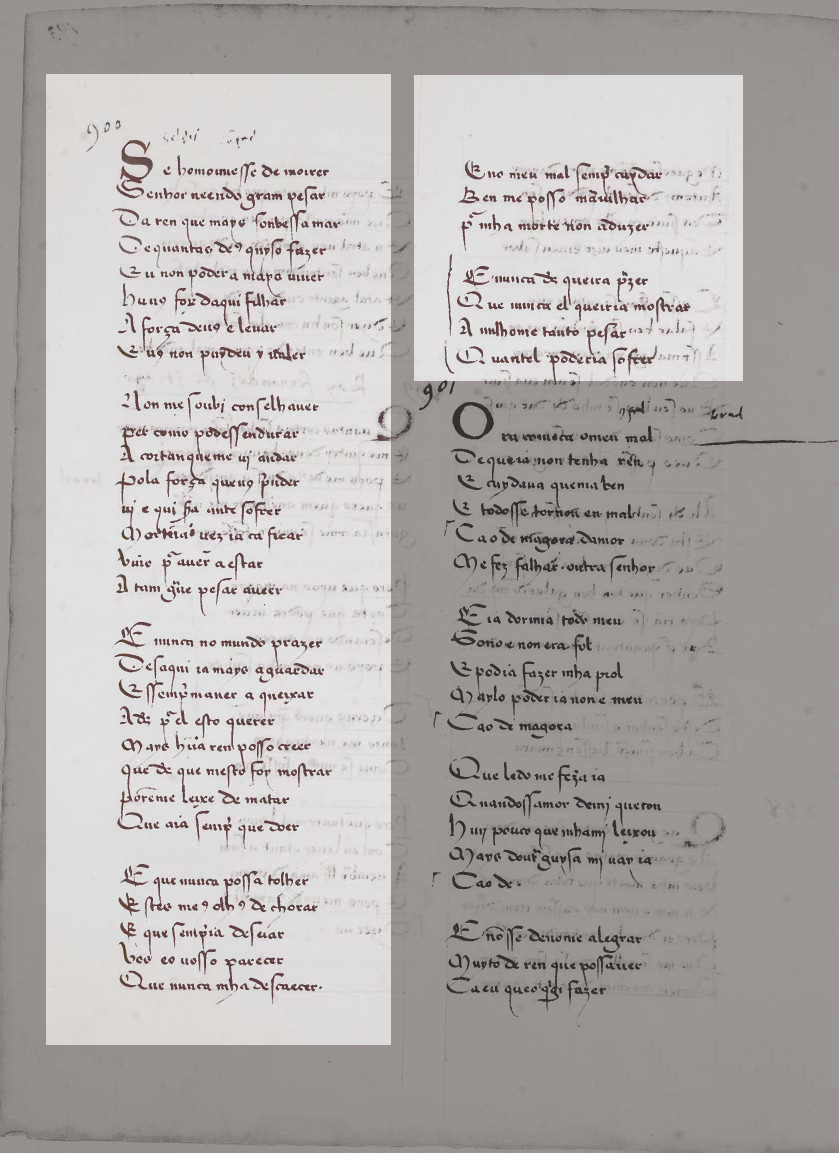 900
Se homouuesse de moirer
Senhor ueendo gram pesar
Da ren que mays soubessa mar
De quantas deꝯ quyso fazer
Eu non podera mays uiuer
huuꝯ foy daqui filhar
A força deuꝯ e leuar
E uꝯ non puydeu y ualer
Non me soubi conselhauer
per como podessendurar
A coitanqueme ui andar
Pola força queuꝯ p̃nder
ui e qui ante sofrer
Mort ia uez ia ca ficar
Viuo p̃ auer a estar
A tam pesar aueer
E nunca no mundo prazer
Desaqui ia mays aguardar
E ssemp̃ maner a queixar
A dꝫ p̃ el esto querer
Mays hũa ren posso creer
que dꝫ que mesto foy mostrar
porẽme leixe de matar
Que aia semp̃ que doer
E que nunca possa tolher
Estes meꝯ olhꝯ de chorar
E que semp̃ia deseiar
Vos eo uosso parecer
Que nunca mha descaecer.
E no meu mal semp̃ cuydar
Ben me posso marauilhar
p̃ mha morte non aduzer
E nunca dꝫ queira p̃zer
Que nunca el queiria mostrar
A nulhome tanto pesar
Quantel poderia sofrer
901
Ora comẽça o meu mal
De que ia non tenha rẽn
E cuydaua quemia ben
E todosse tornou en mal
Ca o dem agora damor
Me fez falhar outra senhor
E ia dormia todo meu
Sono e non era fol
E podia fazer mha prol
Mays lo poder ia non e meu
Ca o dem agora
Que ledo me feza ia
Quandossamor demi quitou
Huu pouco que mhami leixou
Mays doutra guysa mi uay ia
Ca o de.
E nosse deuome alegrar
Muyto de ren que possauer
Ca eu fazer